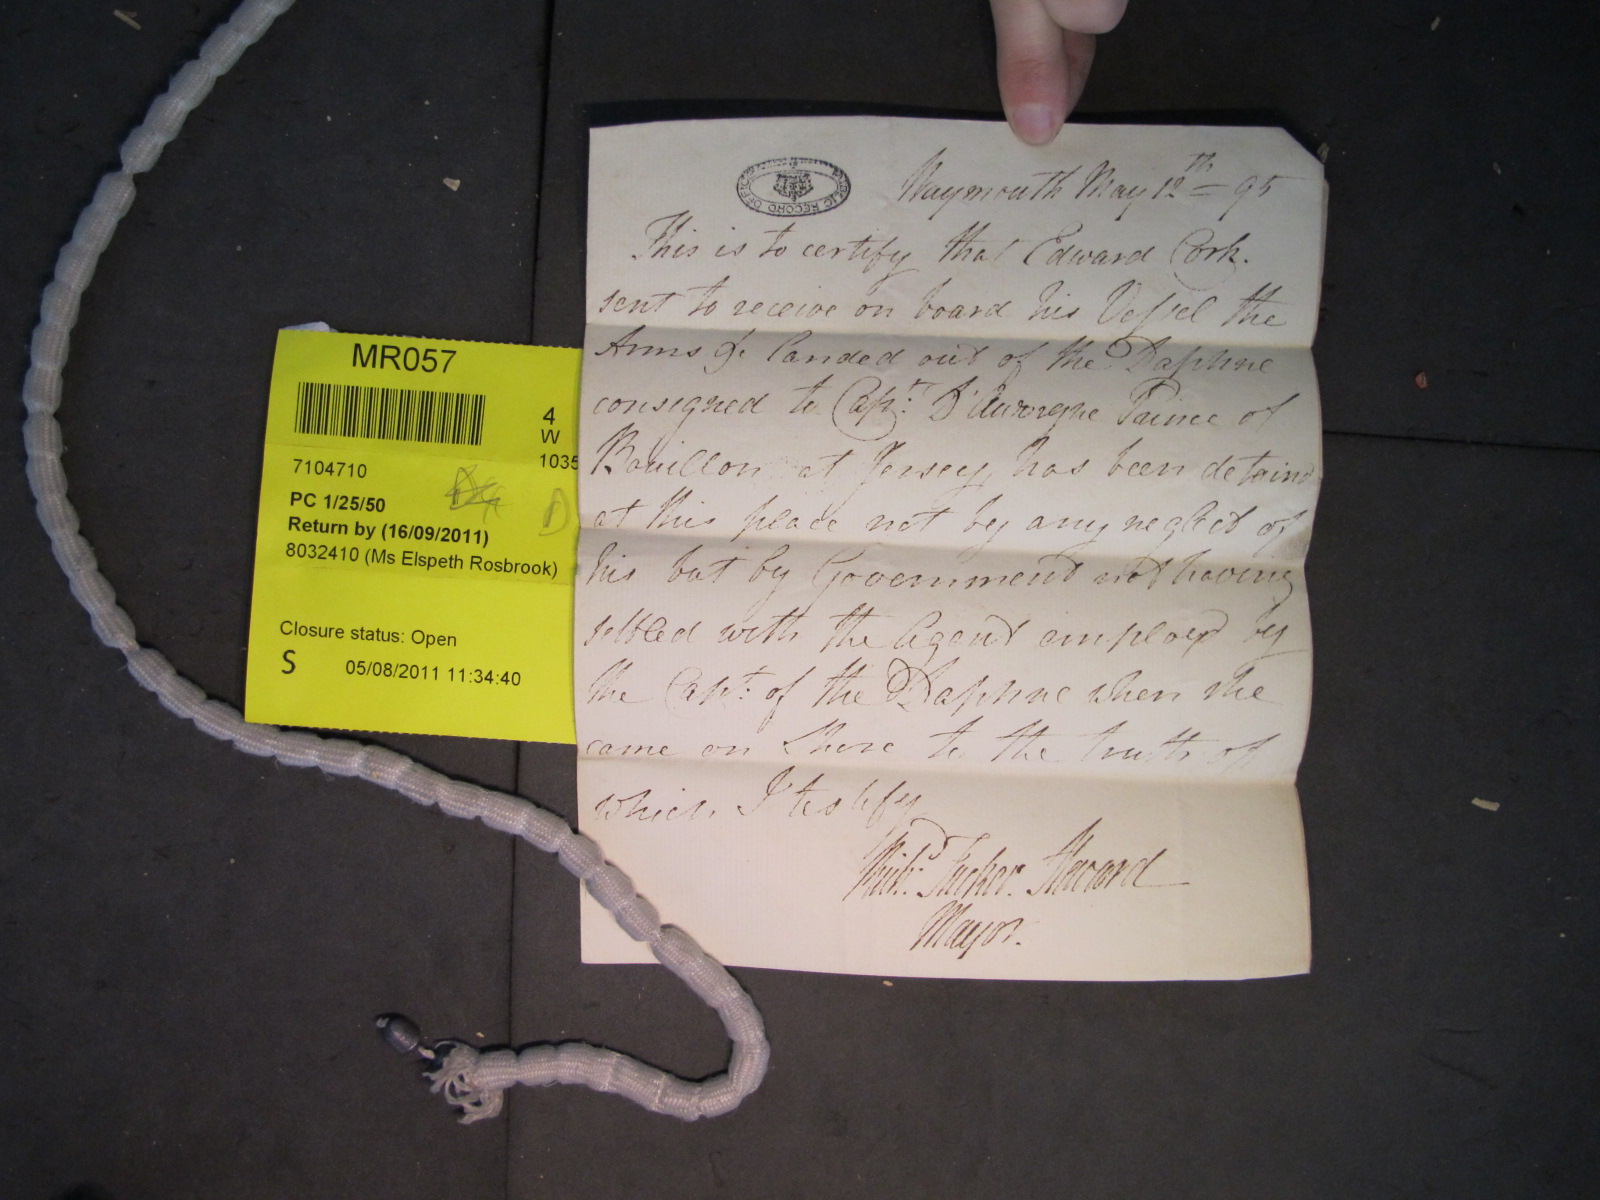 MR057
4
W
1035
7104710
PC 1/25/50
Return by (16/09/2011)
8032410 (Ms Elspeth Rosbrook)
Closure status: Open
S 05/08/2011 11:34:40
PUBLIC RECORD OFFICE
Waymouth May 12th = 95
This is to certify that Edward Cork.
sent to receive on board his Vessel the
Arms &c landed out of the Daphne
consigned to Capt: D'Auvergne Prince of
Bouillon at Jersey, has been detaind
at this place not by any neglect of
his but by Government not having
settled with the Agent employd by
the Capt: of the Daphne when she
came on Shore to the truth of
which I testify
Richd: Tucker Steward
Mayor.